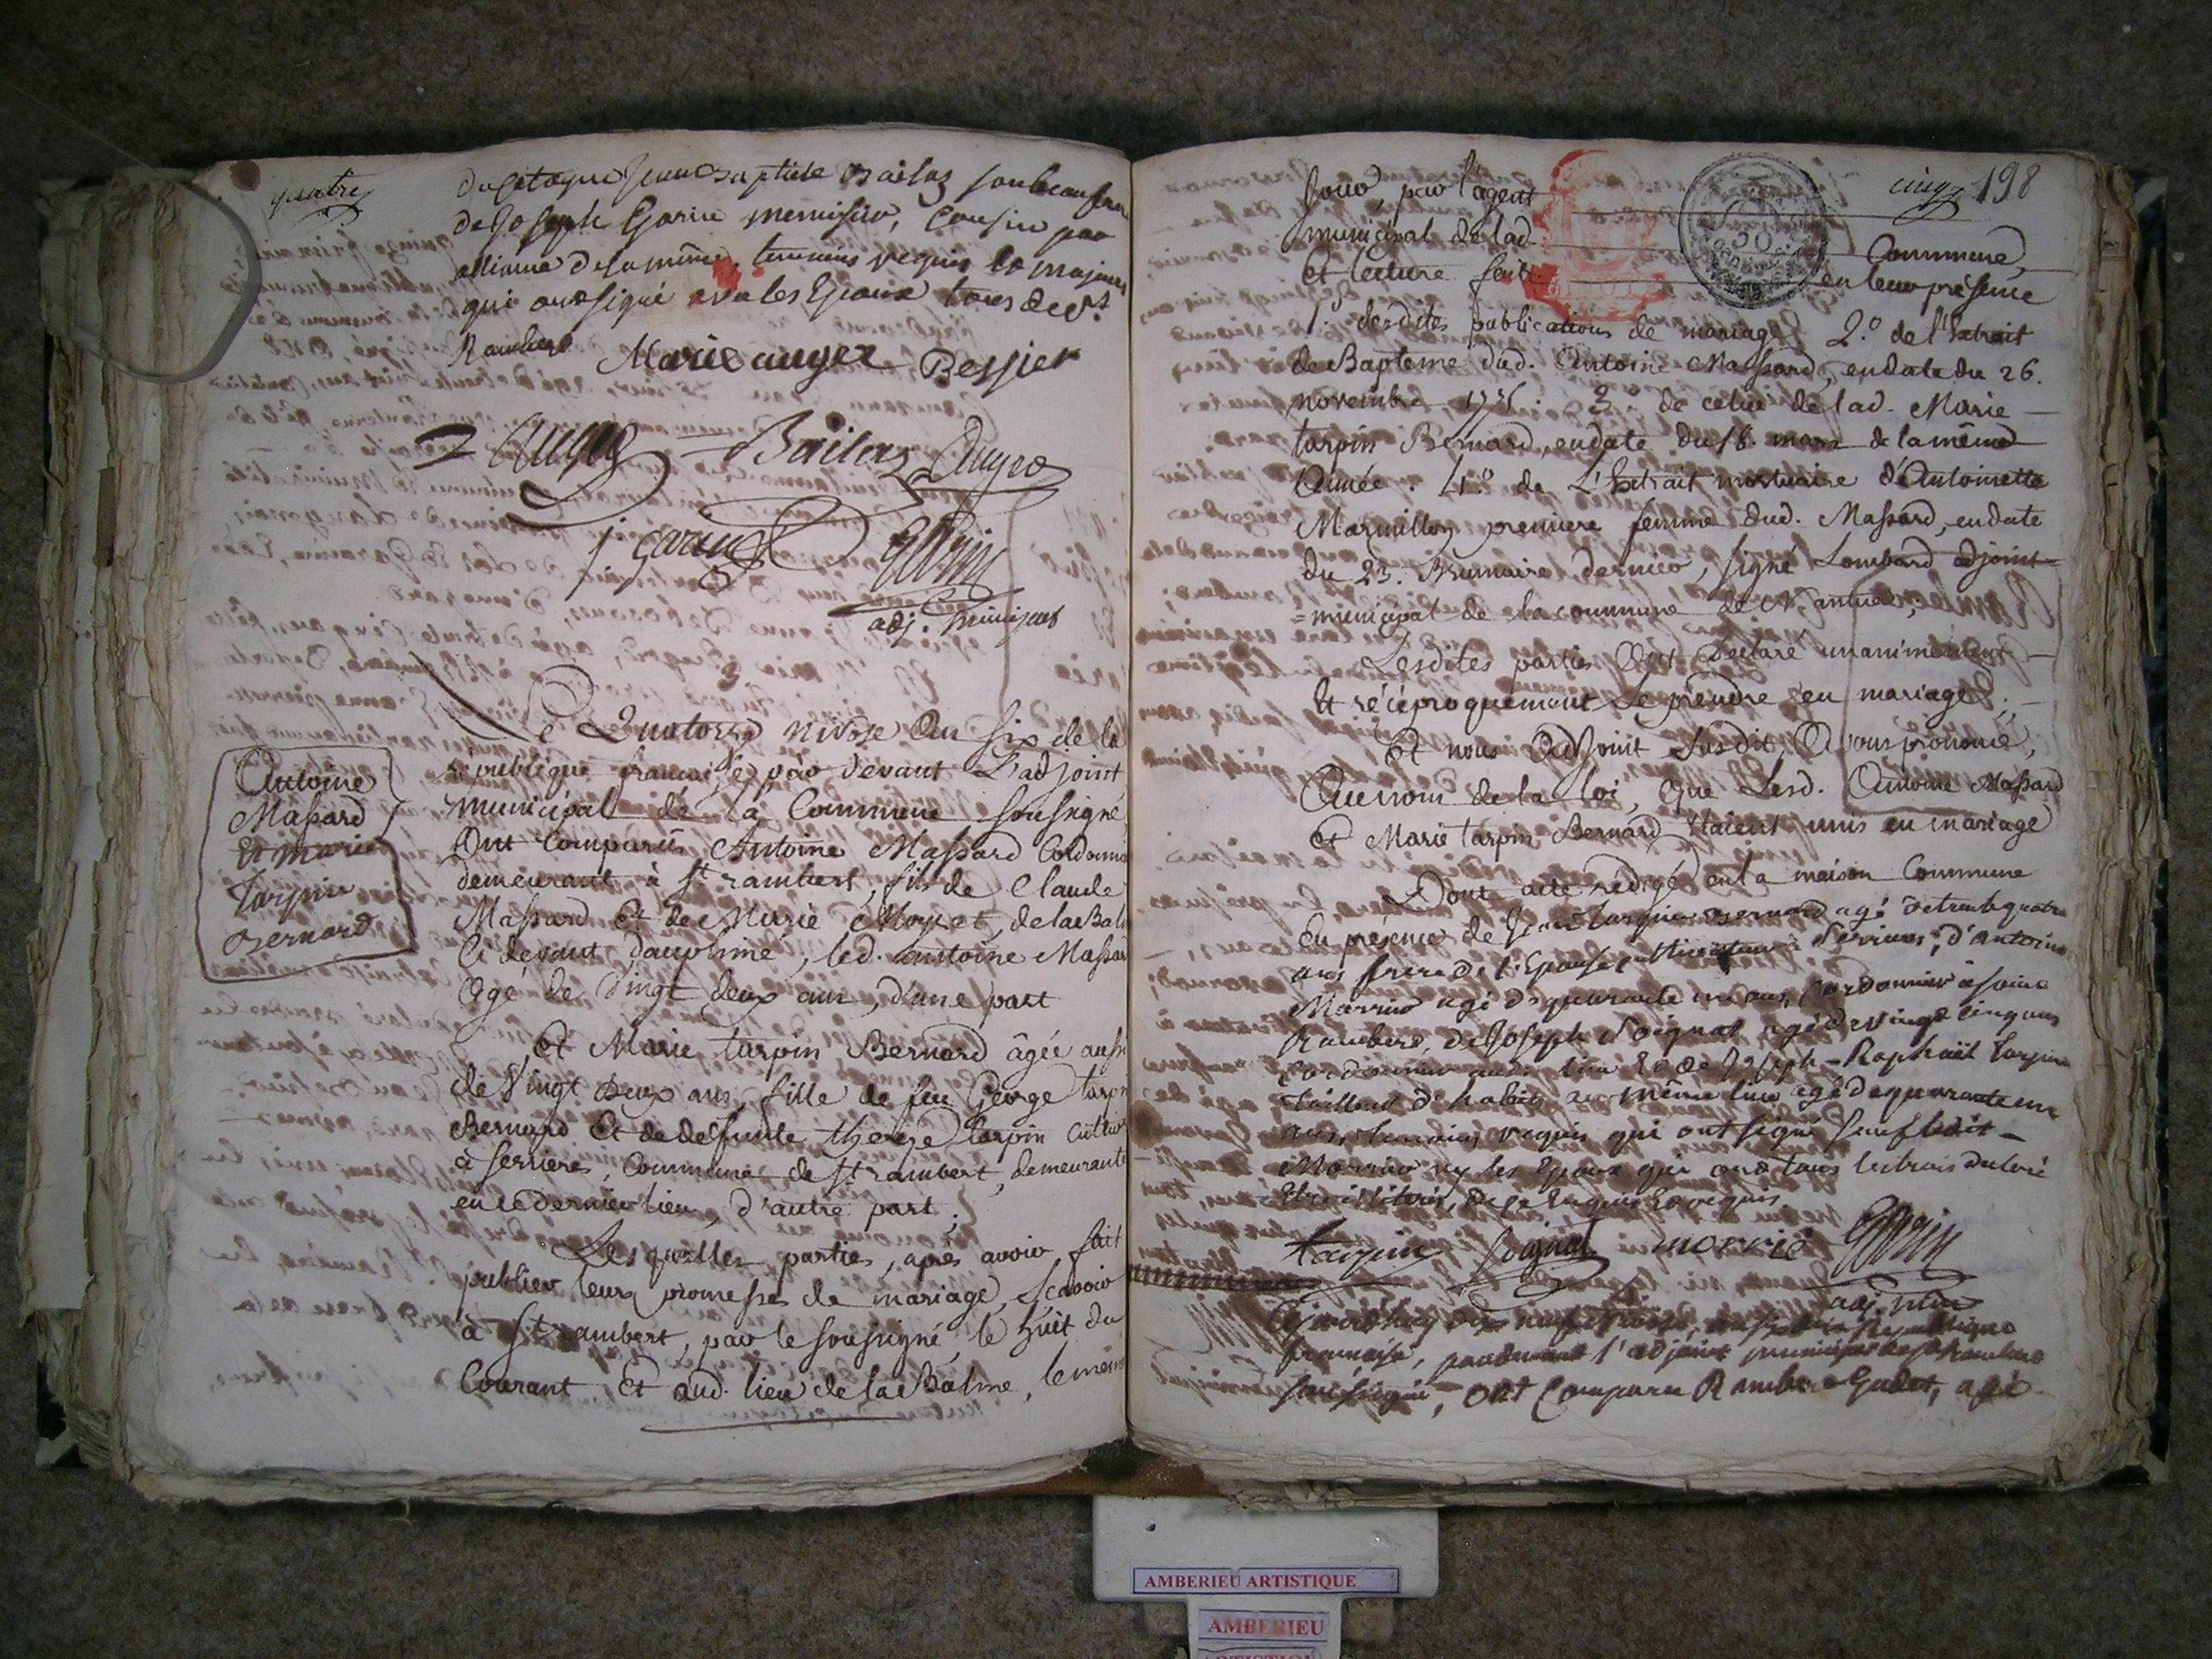 quatre
du citoyen Jean Baptiste Bailas son beau frere
de Joseph Garin menuisier, cousin par
alliance de la même, temoins requis et majeurs
qui ont signé avec les Epoux tous de St
Rambert
Marie auger Bessier
Auger Bailas Auger
j garin
adj. municipal
Le Quatorze nivose an six de la
republique francaise par devant L'adjoint
municipal de la Commune soussigné
Ont comparus Antoine Massard Cordonnier
demeurant à St rambert, fils de Claude
Massard Et de Marie Moyret, de la Balme
Ci devant dauphiné, led. antoine Massard
Agé de vingt deux ans, d'une part
Antoine
Massard
Et marie
Tarpin
Bernard
Et Marie tarpin Bernard âgée aussi
de vingt deux ans, fille de feu George tarpin
Bernard Et de deffunte thereze tarpin
à serrieres, Commune de St rambert, demeurante
en ce dernier lieu, d'autre part;
Lesquelles parties, après avoir fait
publier leurs promesses de mariage, scavoir
à St rambert, par le soussigné, le huit du
Courant, Et aud. lieu de la Balme, le même
cinq 198
jour, par l'agent
municipal de lad. Commune,
Et lecture faite en leur présence
1.º desdites publications de mariage 2.º de l'Extrait
de Bapteme dud. Antoine Massard, en date du 26.
novembre 1775. 3.º de celui de lad. Marie
tarpin Bernard, en date du 18. mars de la même
Année. 4.º de L'Extrait mortuaire d'Antoinette
Marmillon premiere femme dud. Massard, en date
du 23. Brumaire dernier, signé Lombard adjoint
municipal de la commune de Nantua;
Lesdites parties Ont declaré unanimement
Et réciproquement Se prendre en mariage;
Et nous Adjoint susdit, Avons prononcé,
Au nom de la loi, Que Lesd. Antoine Massard
Et Marie tarpin Bernard étaient unis en mariage
Dont acte rédigé en la maison Commune
En presence de Jean tarpin Bernard agé de trente quatre
ans frere de l'Epouse cultivateur à Serrieres, d'Antoine
Morrier agé de quarante un ans, Cordonnier à saint
Rambert, de Joseph Soignat agé de vingt cinq ans
Cordonnier aud. lieu Et de Joseph-Raphaël tarpin
tailleur d'habits au même lieu agé de quarante un
ans, temoins requis qui ont signé sauf ledit
Morrier ny les Epoux qui ont tous les trois declaré
Etre illiterés, de ce Enquis Et requis
tarpin Soignat morrié
adj. mun
francaise, pardevant l'adjoint municipal de St Rambert
soussigné, ont Comparu Rambert Gudet, agé